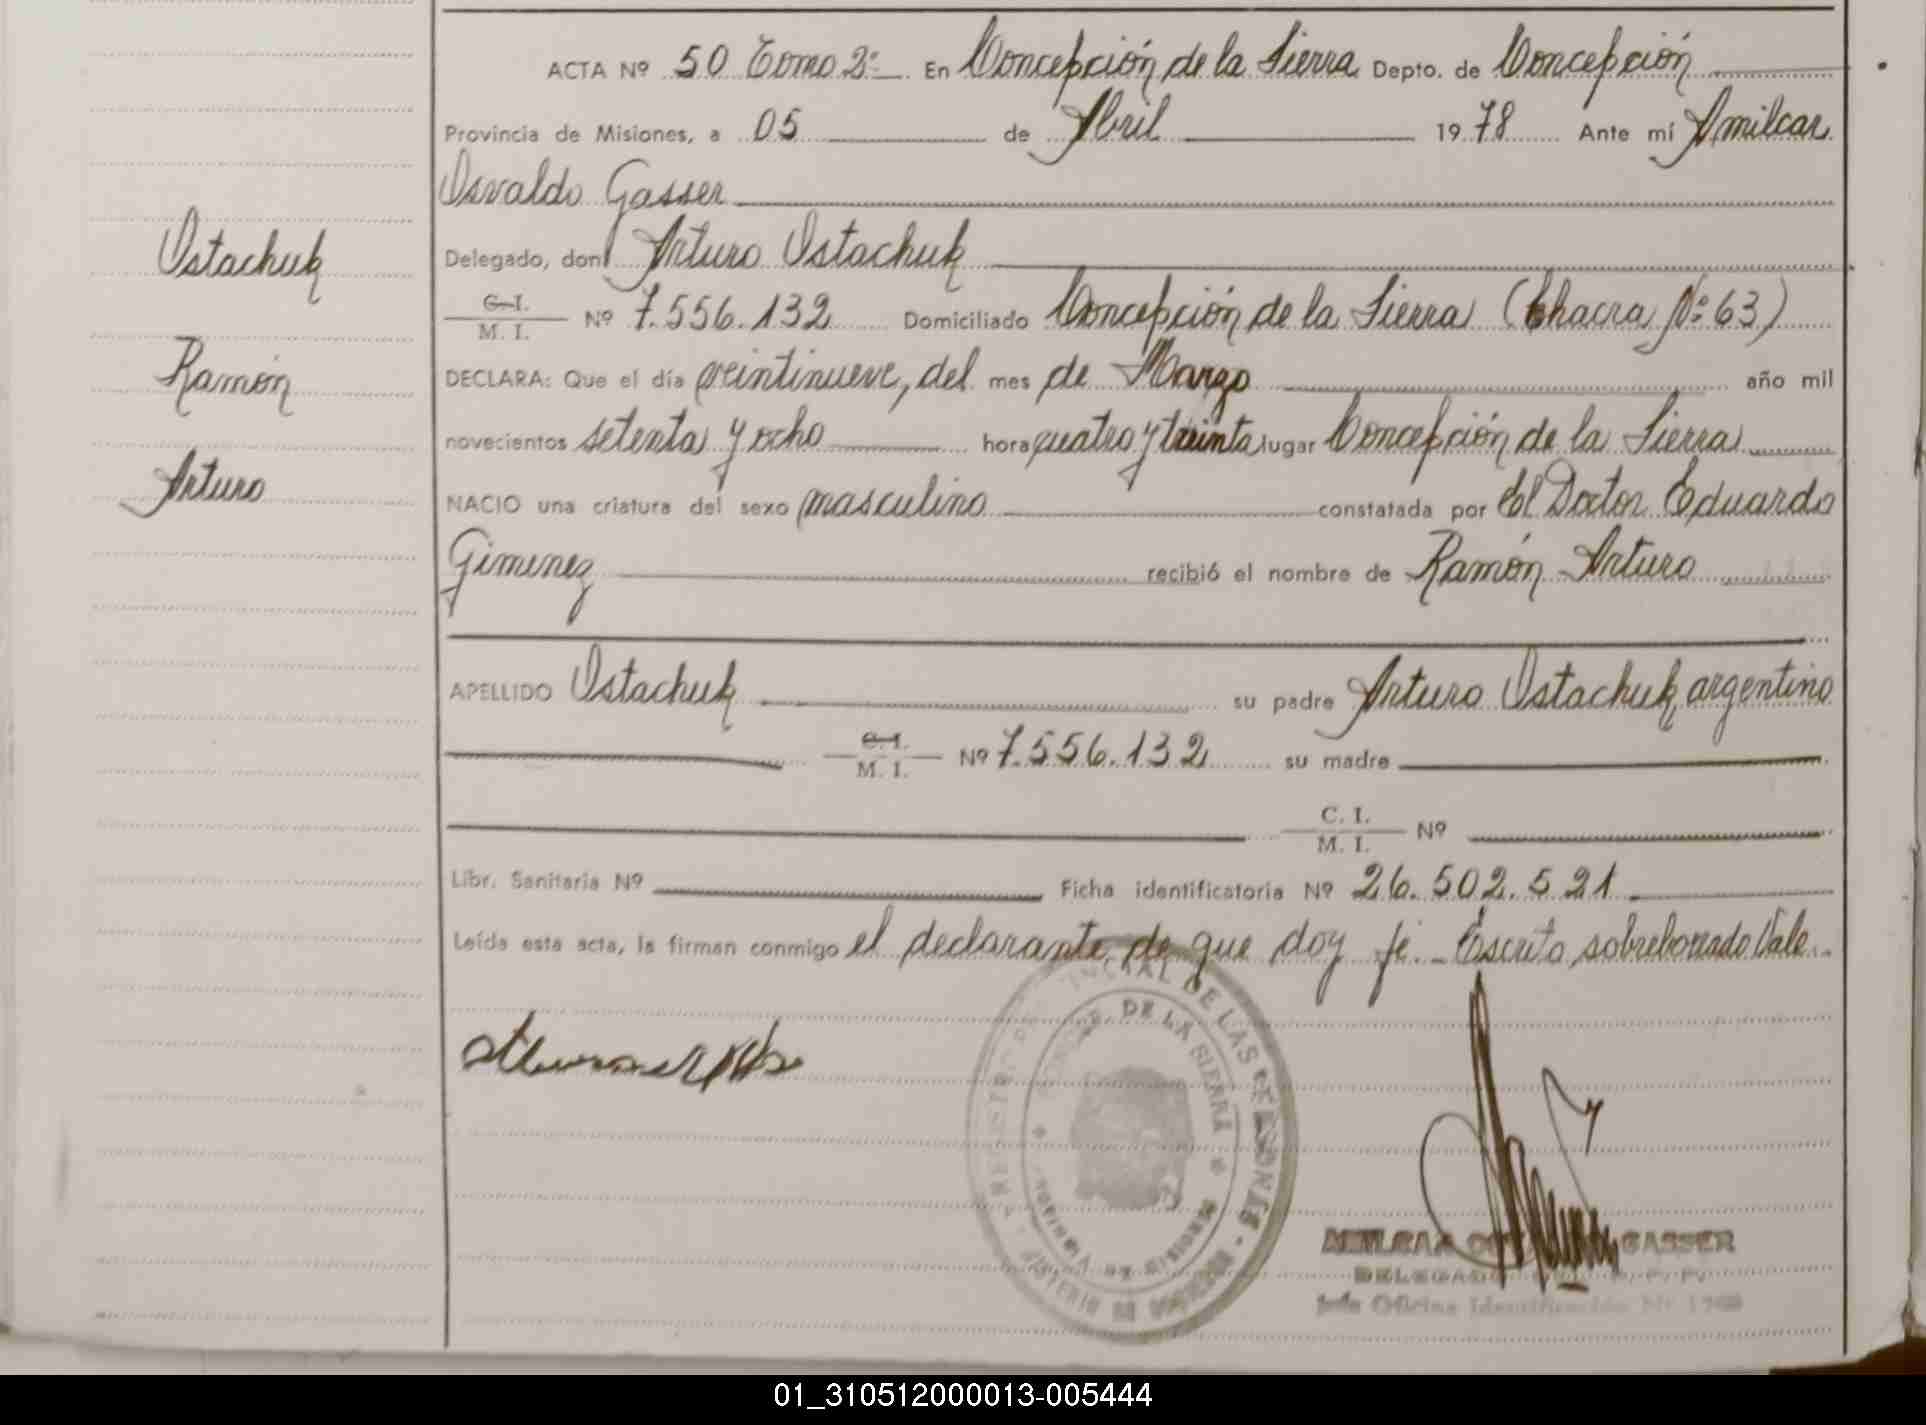 ACTA Nº 50 Tomo 2º En Concepción de la Sierra Depto. de Concepción
Provincia de Misiones, a 05 de Abril 1978 Ante mí Amilcar
Osvaldo Gasser
Ostachuk
Delegado, don Arturo Ostachuk
C.I.
M. I. Nº 7.556.132 Domiciliado Concepción de la Sierra (Chacra Nº 63)
Ramón
DECLARA: Que el día veintinueve, del mes de Marzo año mil
novecientos setenta y ocho hora cuatro y treinta lugar Concepción de la Sierra
Arturo
NACIO una criatura del sexo masculino constatada por El Doctor Eduardo
Gimenez recibió el nombre de Ramón Arturo
APELLIDO Ostachuk su padre Arturo Ostachuk, argentino
C.I.
M. I. Nº 7.556.132 su madre
C. I.
M. I. Nº
Libr. Sanitaria Nº Ficha identificatoria Nº 26.502.521
Leída esta acta, la firman conmigo el declarante, de que doy fé._ Escrito sobreborrado Vale.
DE LAS PERSONAS
DE LA SIERRA
GASSER
DELEGADO
Jefe Oficina Identificación Nº
01_310512000013-005444